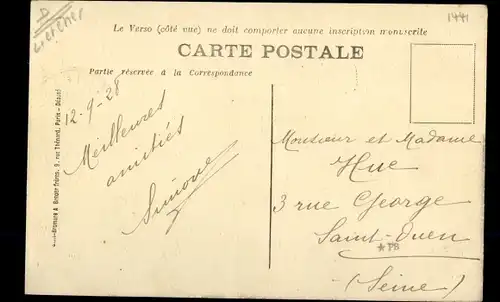 D
1441
Le Verso (côté vue) ne doit comporter aucune inscription manuscrite
CARTE POSTALE
Partie réservée à la Correspondance
2-9-28
Meilleures
amitiés
Simone
Monsieur et Madame
Hue
3 rue George
Saint-Ouen
★PB
(Seine)
Breger Frères, 9, rue Thénard, Paris